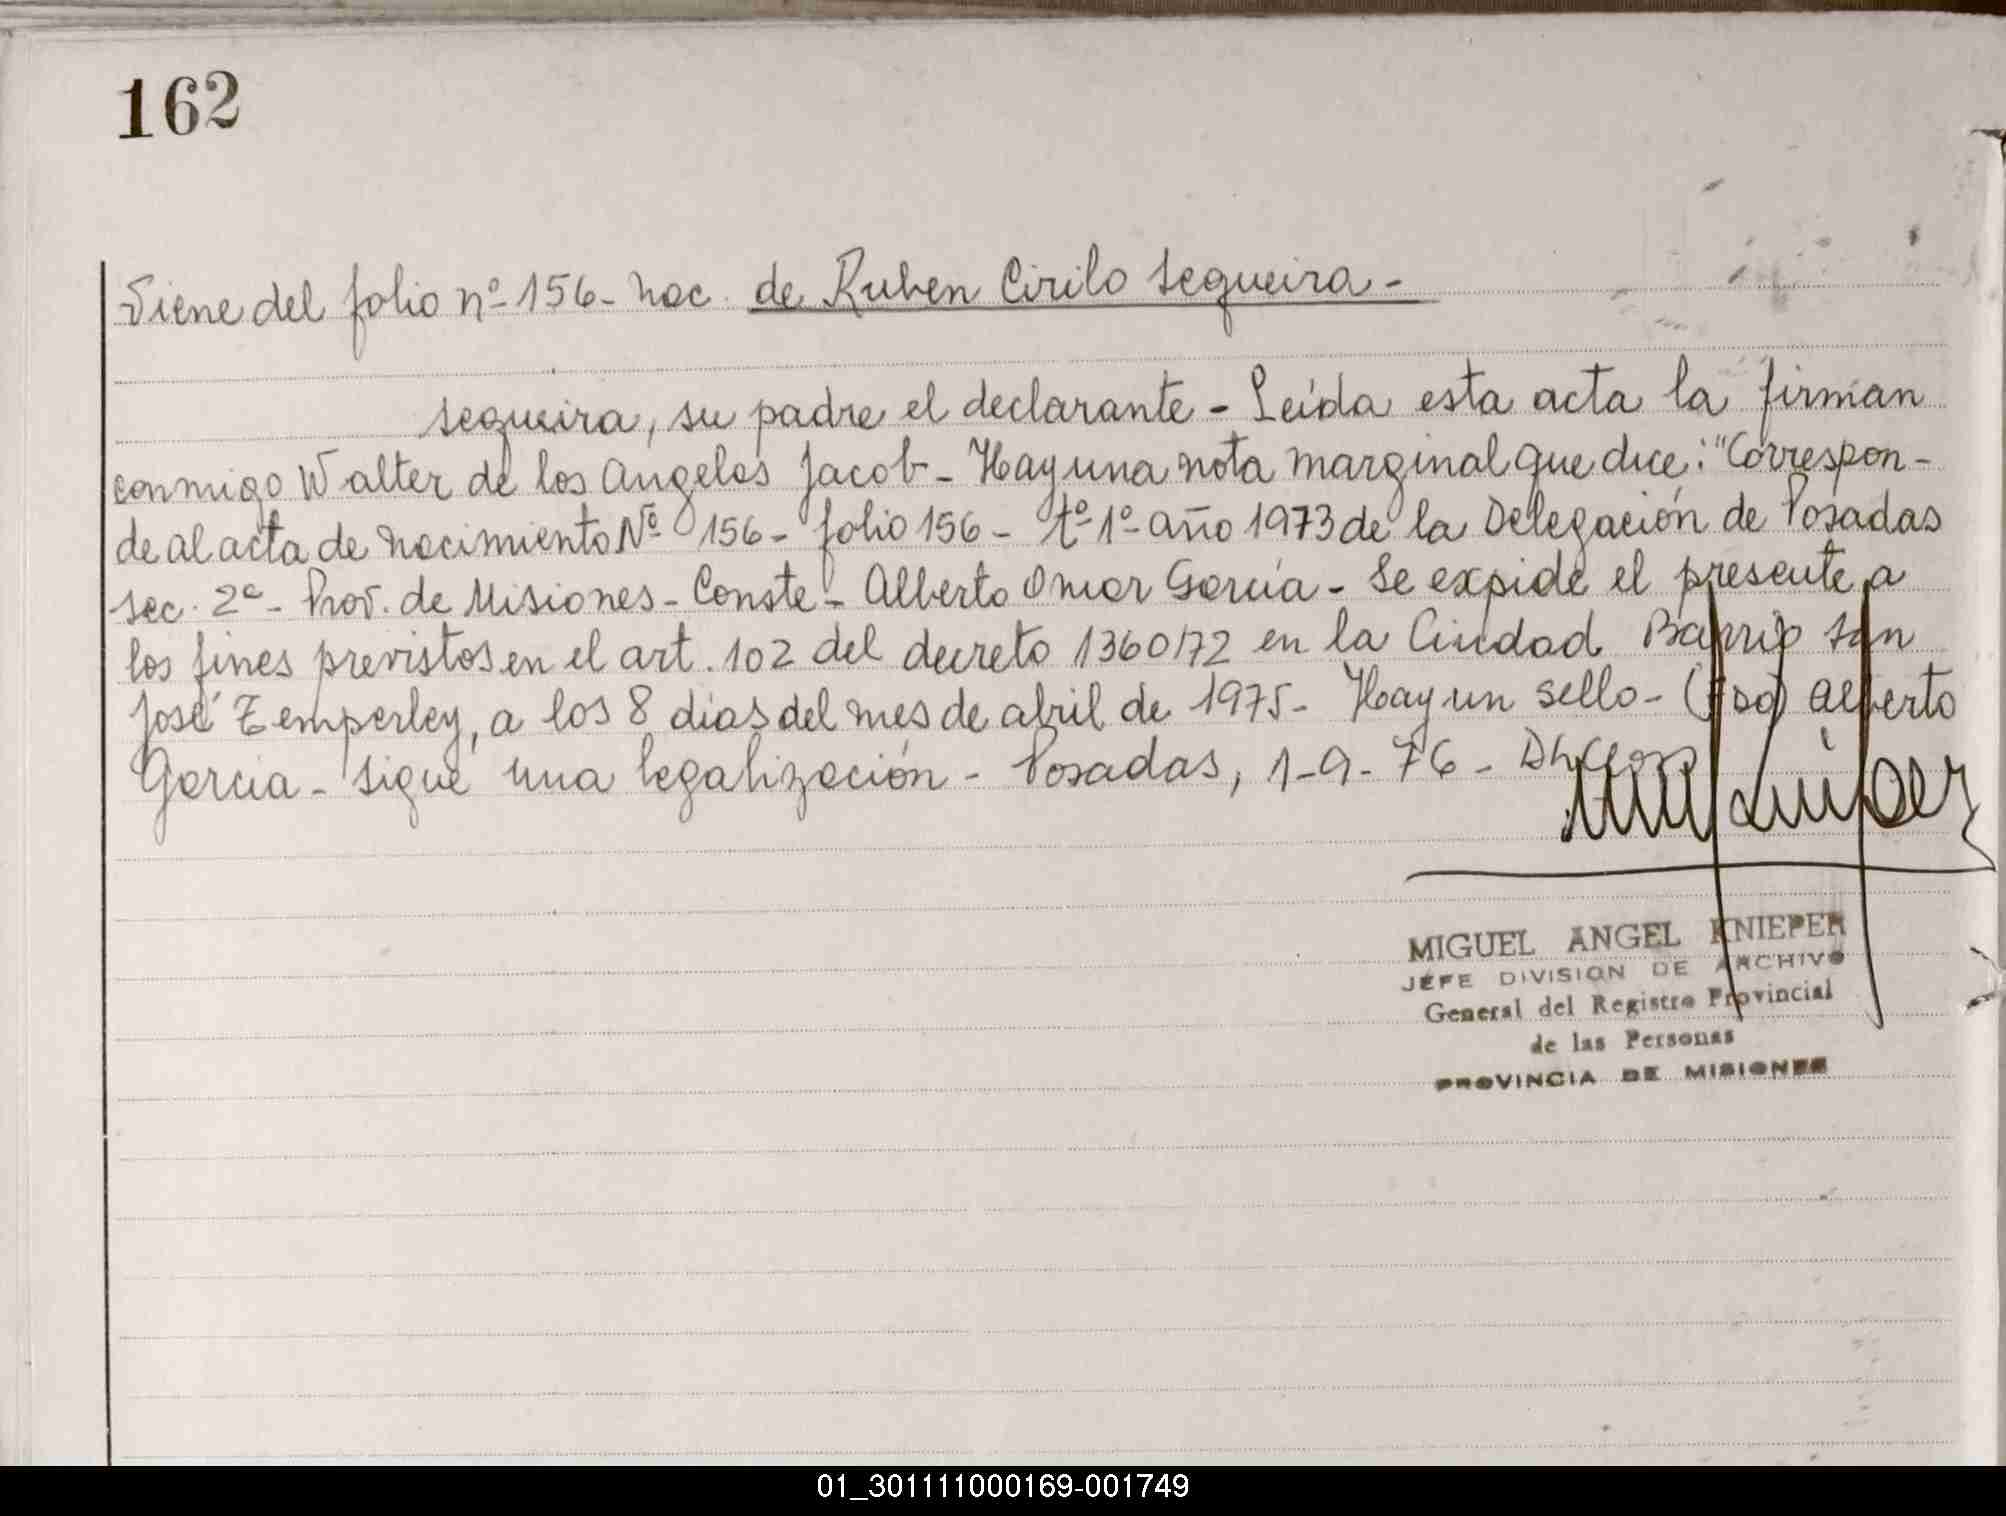 162
Viene del folio nº 156 - nac. de Ruben Cirilo Sequeira -
Sequeira, su padre el declarante - Leída esta acta la firman
conmigo Walter de los Angeles Jacob - Hay una nota marginal que dice: "Correspon-
de al acta de nacimiento Nº 156 - folio 156 - tº 1º - año 1973 de la Delegación de Posadas
sec. 2ª - Prov. de Misiones - Conste - Alberto Omar García - Se expide el presente a
los fines previstos en el art. 102 del decreto 1360/72 en la Ciudad Barrio San
José Temperley, a los 8 días del mes de abril de 1975 - Hay un sello - (Fdo) Alberto
García - Sigue una legalización - Posadas, 1-9-76 -
MIGUEL ANGEL KNIEPER
JEFE DIVISION DE ARCHIVO
General del Registro Provincial
de las Personas
PROVINCIA DE MISIONES
01_301111000169-001749